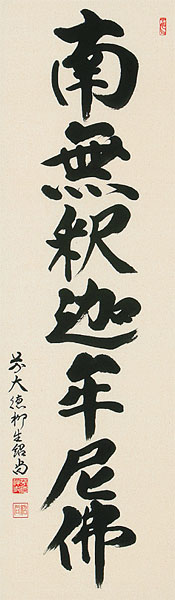 南無釈迦牟尼佛
前大徳柳生紹尚